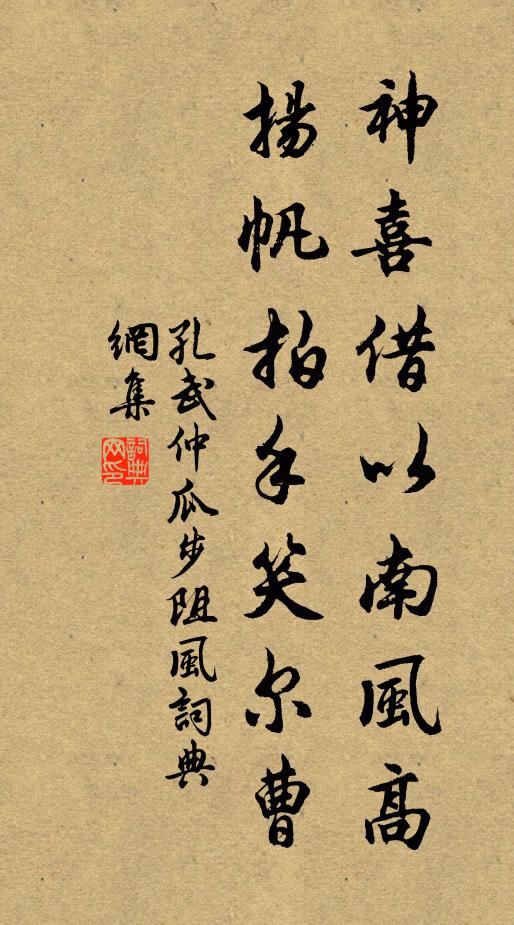 神喜借以南風高
揚帆拍手笑尔曹
孔武仲瓜步阻風詞典
網集
詞典
网印